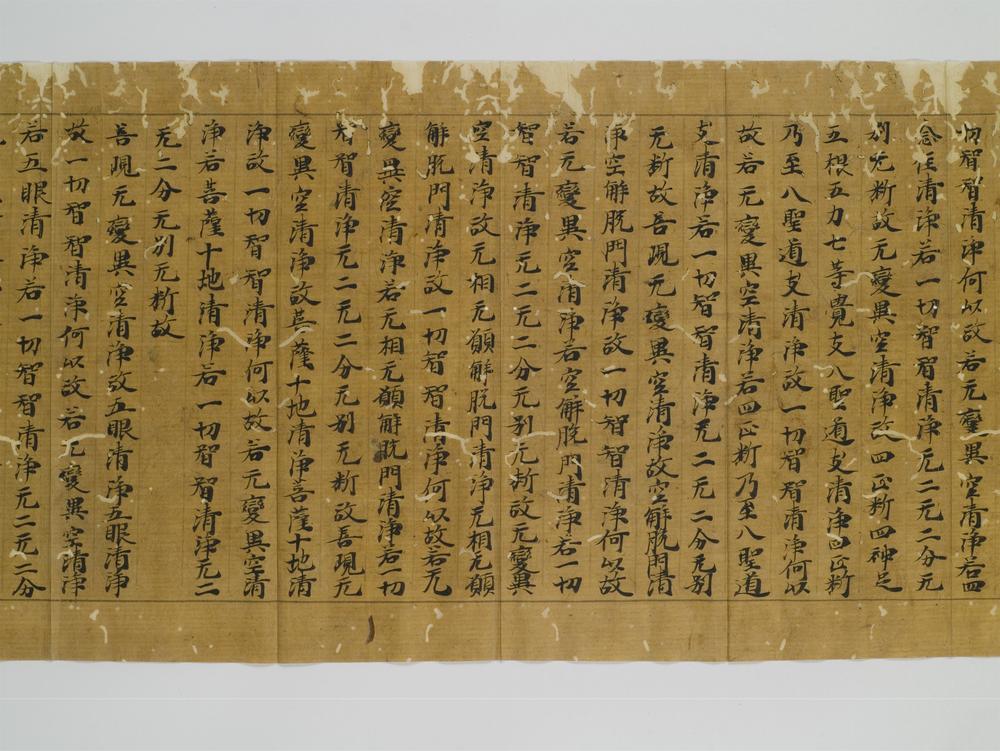 切智智清淨何以故若无變異空清淨若四
念住清淨若一切智智清淨无二无二分无
別无斷故无變異空清淨故四正斷四神足
五根五力七等覺支八聖道支清淨四正斷
乃至八聖道支清淨故一切智智清淨何以
故若无變異空清淨若四正斷乃至八聖道
支清淨若一切智智清淨无二无二分无別
无斷故善現无變異空清淨故空解脫門清
淨空解脫門清淨故一切智智清淨何以故
若无變異空清淨若空解脫門清淨若一切
智智清淨无二无二分无別无斷故无變異
空清淨故无相无願解脫門清淨无相无願
解脫門清淨故一切智智清淨何以故若无
變異空清淨若无相无願解脫門清淨若一切
智智清淨无二无二分无別无斷故善現无
變異空清淨故菩薩十地清淨菩薩十地清
淨故一切智智清淨何以故若无變異空清
淨若菩薩十地清淨若一切智智清淨无二
无二分无別无斷故
善現无變異空清淨故五眼清淨五眼清淨
故一切智智清淨何以故若无變異空清淨
若五眼清淨若一切智智清淨无二无二分